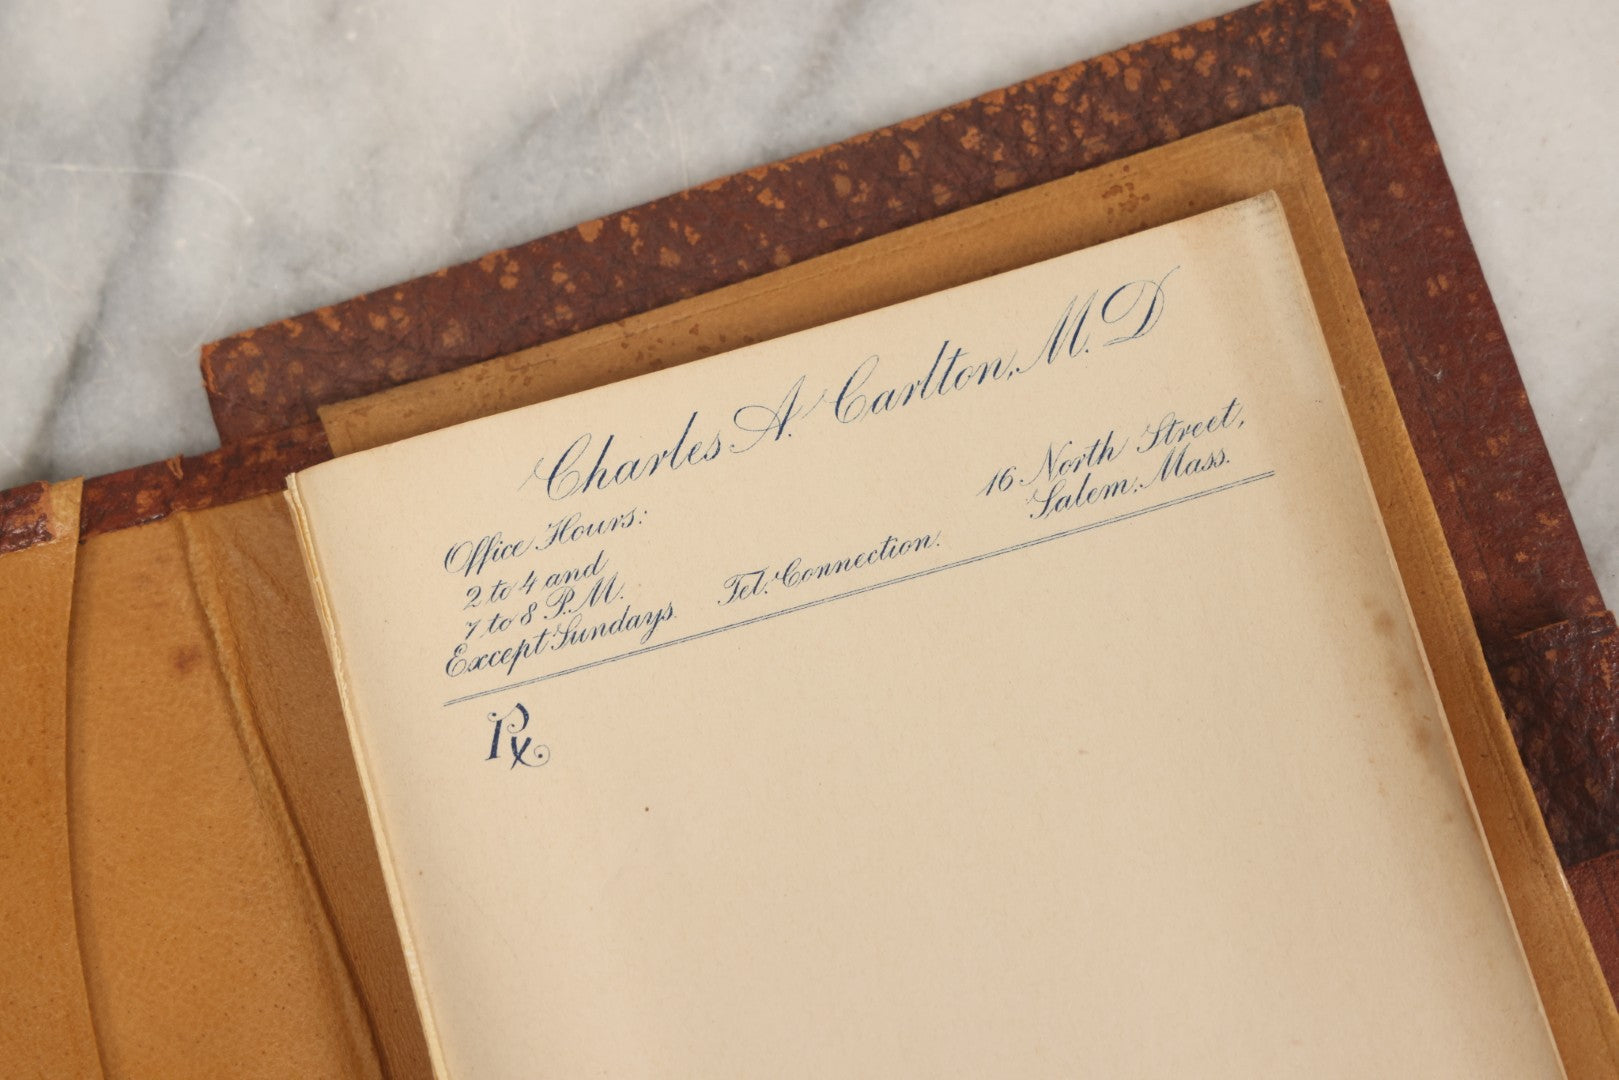 Charles A. Carlton, M.D
Office Hours:
2 to 4 and
7 to 8 P.M.
Except Sundays.
Tel. Connection.
16 North Street,
Salem, Mass.
Rx